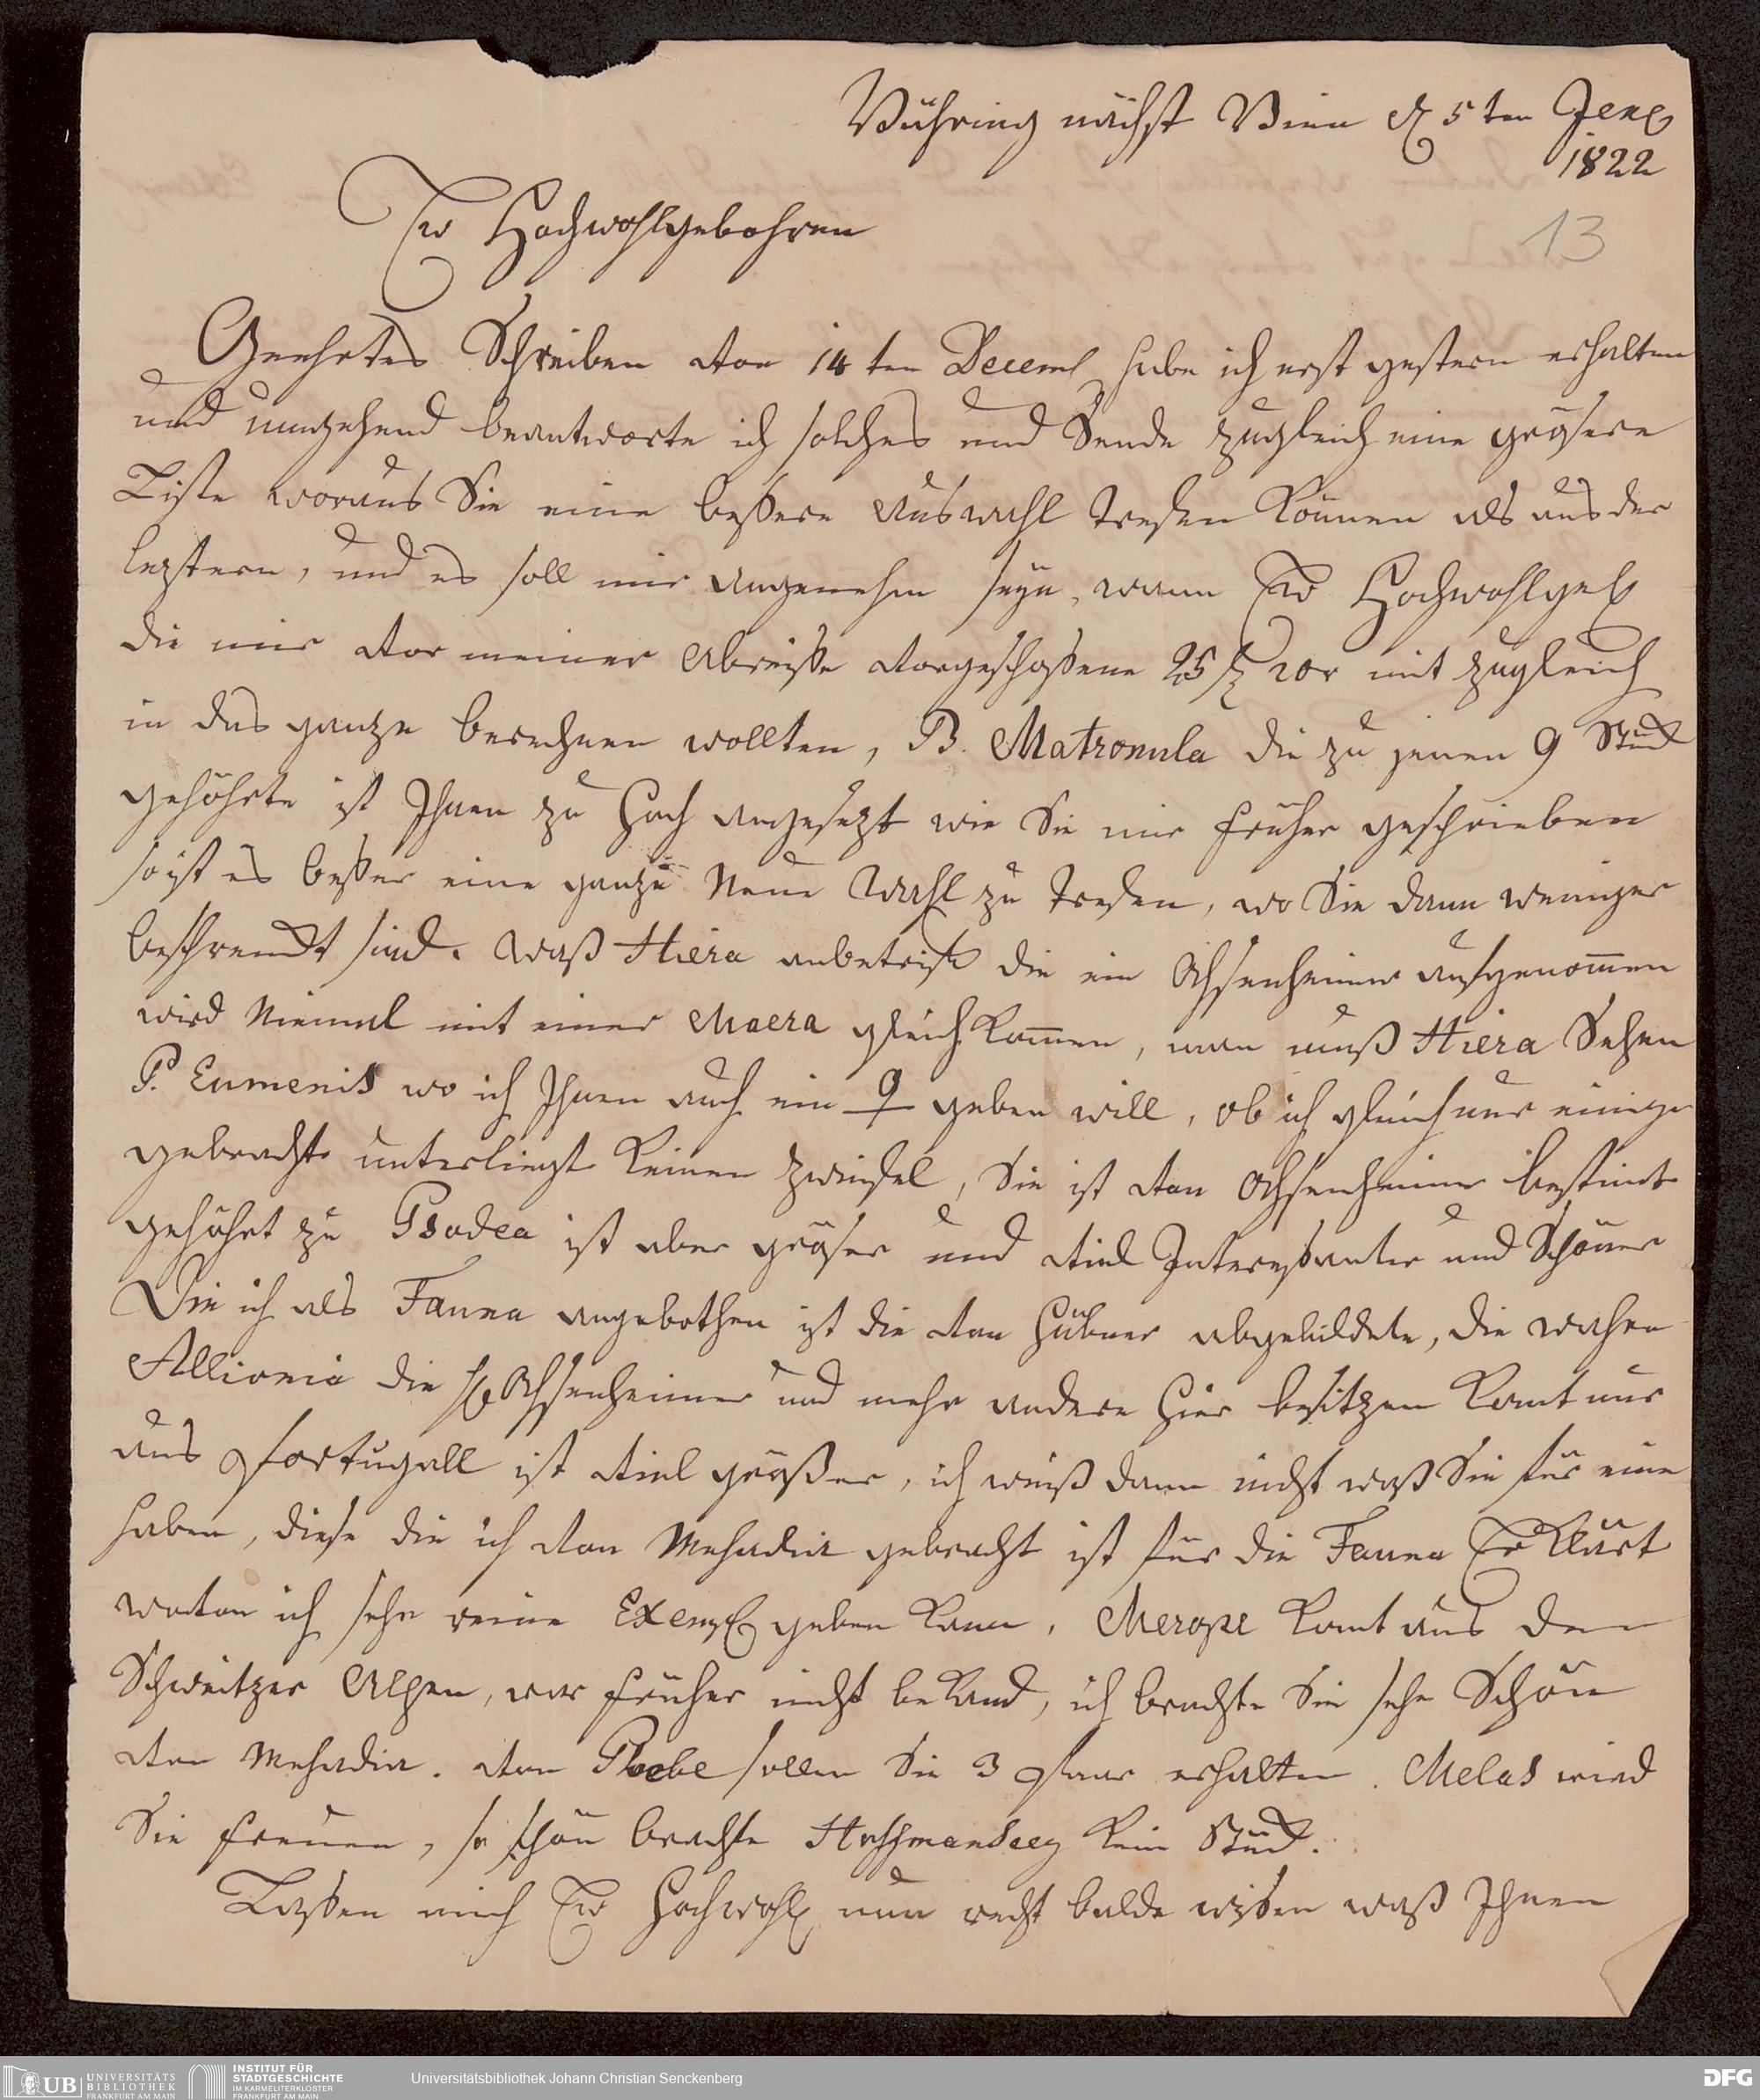 Währing nächst Wien d 5ten Jenr
1822
13
Ew Hochwohlgebohren
Geehrtes Schreiben von 14ten Decemb habe ich erst gestern erhalten
und umgehend beantworte ich solches und Sende zugleich eine grösere
Liste woraus Sie eine beßere Auswahl trefen können als aus der
leztern, und es soll mir angenehm seyn, wann Ew Hochwohlgeb
die mir vor meiner Abreiße vorgeschoßene 25 f mit zugleich
in das ganze berechnen wollten, B. Matronula die zu jenen 9 Stück
gehöhrte ist Ihnen zu Hoch angesezt wie Sie mir früher geschrieben
so ist es beßer eine ganze Neue Wahl zu trefen, wo Sie dann weniger
beschrenckt sind. Waß Hiera anbetrift die ein Ochsenheimer aufgenom̄en
wird Niemal mit einer Maera gleich kom̄en, man muß Hiera Sehen
P. Eumenis wo ich Ihnen auch ein ♀ geben will, ob ich gleich nur einige
gebracht unterliegt keinen Zweifel, Sie ist von Ochsenheimer bestimt
gehöhrt zu Psodea ist aber gröser und viel Intereßanter und Schöner
Die ich als Fauna angebothen ist die von Hübner abgebildete, die wahre
Allionia die H Ochsenheimer und mehr andere hier besitzen komt nur
aus Portugall ist viel größer, ich weiß dann nicht waß Sie für eine
haben, diese die ich von Mehadia gebracht ist für die Fauna Erklärt
wovon ich sehr reine Exempl geben kann. Merope komt aus den
Schweitzer Alpen, war früher nicht bekand, ich brachte Sie sehr Schön
von Mehadia. von Phebe sollen Sie 3 Paar erhalten. Melas wird
Sie freuen, so schön brachte Hoffmansegg kein Stück.
Laßen mich Ew Hochwohl nun recht balde wißen waß Ihnen
UB UNIVERSITÄTS
BIBLIOTHEK
FRANKFURT AM MAIN
INSTITUT FÜR
STADTGESCHICHTE
IM KARMELITERKLOSTER
FRANKFURT AM MAIN
Universitätsbibliothek Johann Christian Senckenberg
DFG